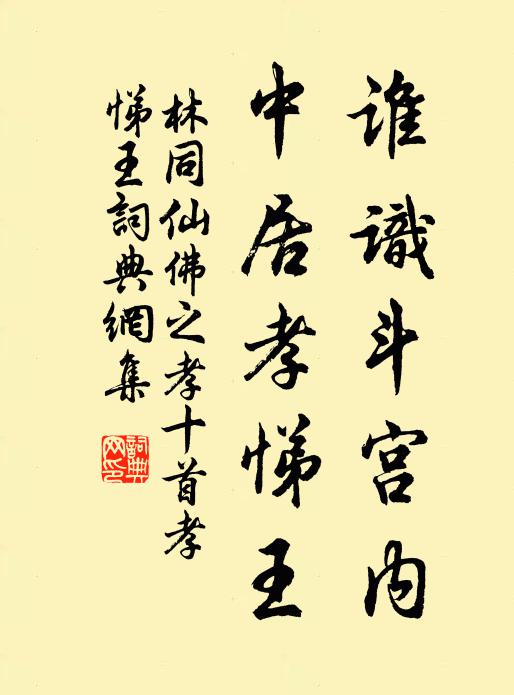 誰識斗宫内
中居孝悌王
林同仙佛之孝十首孝
悌王詞典網集
詞典网印